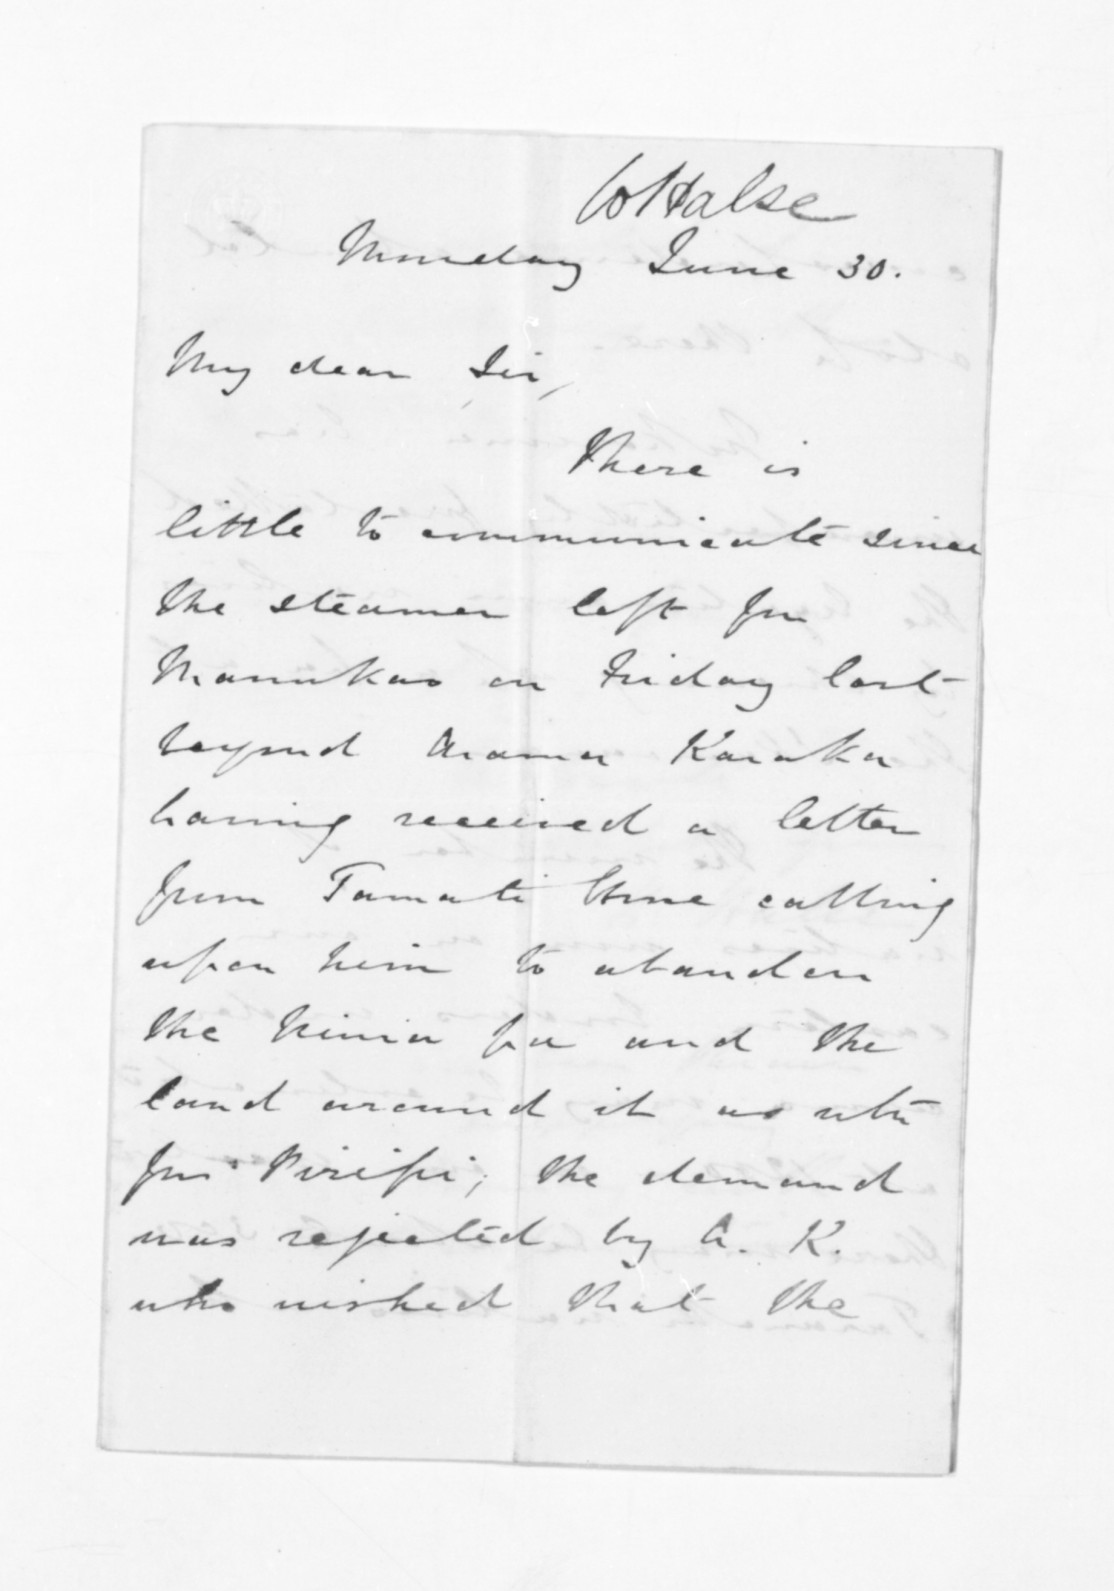 W Halse
Monday June 30.
My dear Sir,
There is
little to communicate since
the steamer left for
Manukau on Friday last
beyond Arama Karaka
having received a letter
from Tamati Hone calling
upon him to abandon
the Ninia pa and the
land around it as utu
for Piripi; the demand
was rejected by A. K.
who wished that the